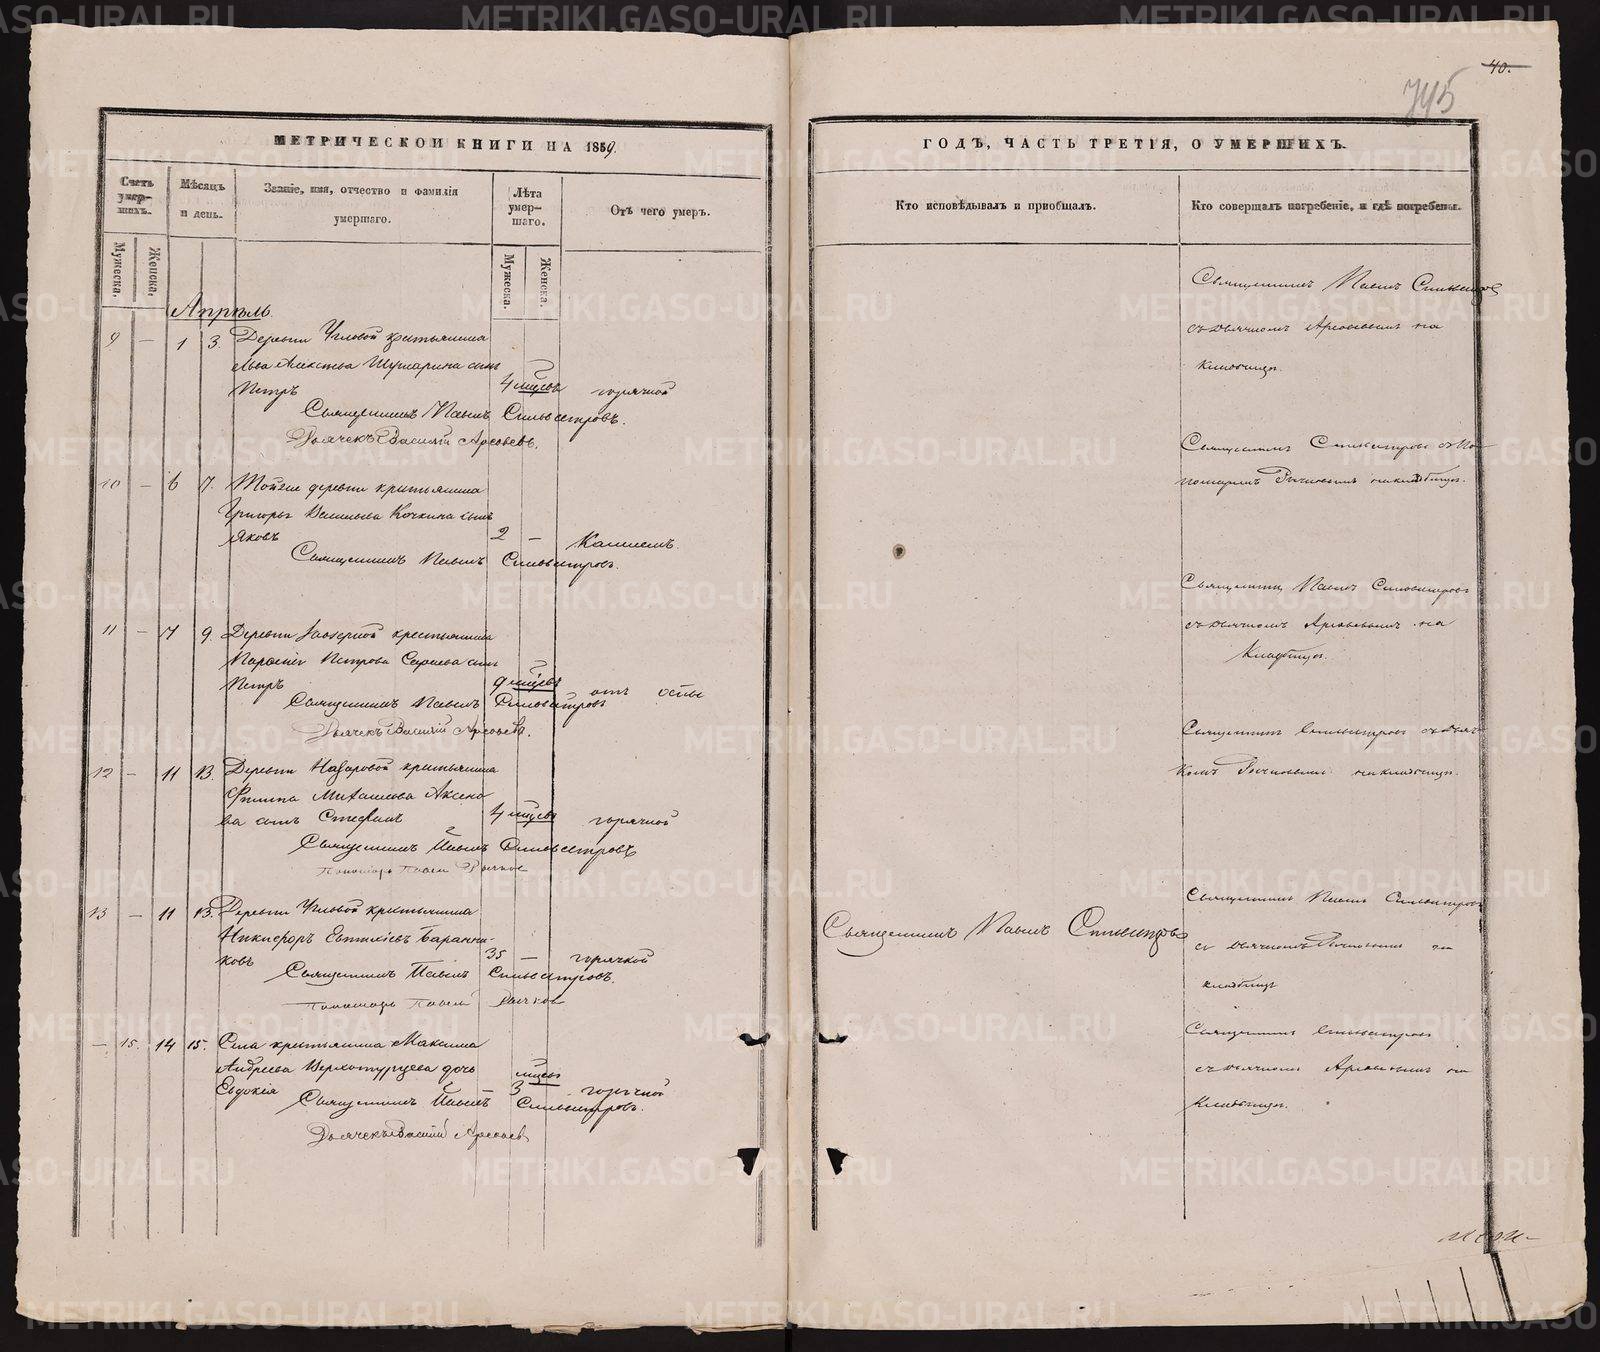 40.
745
МЕТРИЧЕСКОЙ КНИГИ НА 1859.
Счетъ умер-шихъ.
Мѣсяцъ и день.
Званіе, имя, отчество и фамилія умершаго.
Лѣта умер-шаго.
Отъ чего умеръ.
Мужеска.
Женска.
Мужеска.
Женска.
Апрѣль.
9 — 1 3. Деревни Угловой крестьянина
Льва Алексѣева сынъ
Петръ 4 мѣсяц горячкой
Священникъ Павелъ Сильвестровъ.
Дьячекъ Василій Арефьевъ.
10 — 6 7. Тойже деревни крестьянина
Григорья Васильева Кочкина сынъ
Яковъ 2 — Кашлемъ.
Священникъ Павелъ Сильвестровъ.
11 — 7 9. Деревни Заозерной крестьянина
Петрова сынъ
Петръ 9 мѣсяц отъ оспы
Священникъ Павелъ Сильвестровъ
Дьячекъ Василій Арефьевъ.
12 — 11 13. Деревни Назаровой крестьянина
Филипа Михайлова Аксено
ва сынъ Стефанъ 4 мѣсяц горячкой
Священникъ Павелъ Сильвестровъ
Пономарь Павелъ Рычков
13 — 11 13. Деревни Угловой крестьянинъ
Никифоръ Евтихіевъ Баранни-
ковъ 35 — горячкой
Священникъ Павелъ Сильвестровъ.
Пономарь Павелъ Рычков
— 15. 14 15. Села крестьянина Максима
Андреева Верхотурцева дочь
Евдокія мѣсяц 3 горячкой
Священникъ Павелъ Сильвестровъ.
Дьячекъ Василій Арефьев
ГОДЪ, ЧАСТЬ ТРЕТІЯ, О УМЕРШИХЪ.
Кто исповѣдывалъ и пріобщалъ.
Кто совершалъ погребеніе, и гдѣ погребены.
Священникъ Павелъ Сильвестров
съ дьячкомъ Арефьевымъ на
кладбищѣ.
Священникъ Сильвестровъ съ По-
номаремъ Рычковымъ на кладбищѣ.
Священникъ Павелъ Сильвестровъ
съ дьячкомъ Арефьевымъ на
Кладбищѣ.
Священникъ Сильвестровъ съ дьяч-
комъ Рычковымъ на кладбищѣ.
Священникъ Павелъ Сильвестровъ
Священникъ Павелъ Сильвестровъ
съ дьячкомъ Рычковымъ на
кладбищѣ
Священникъ Сильвестровъ
съ дьячкомъ Арефьевымъ на
Кладбищѣ.
METRIKI.GASO-URAL.RU